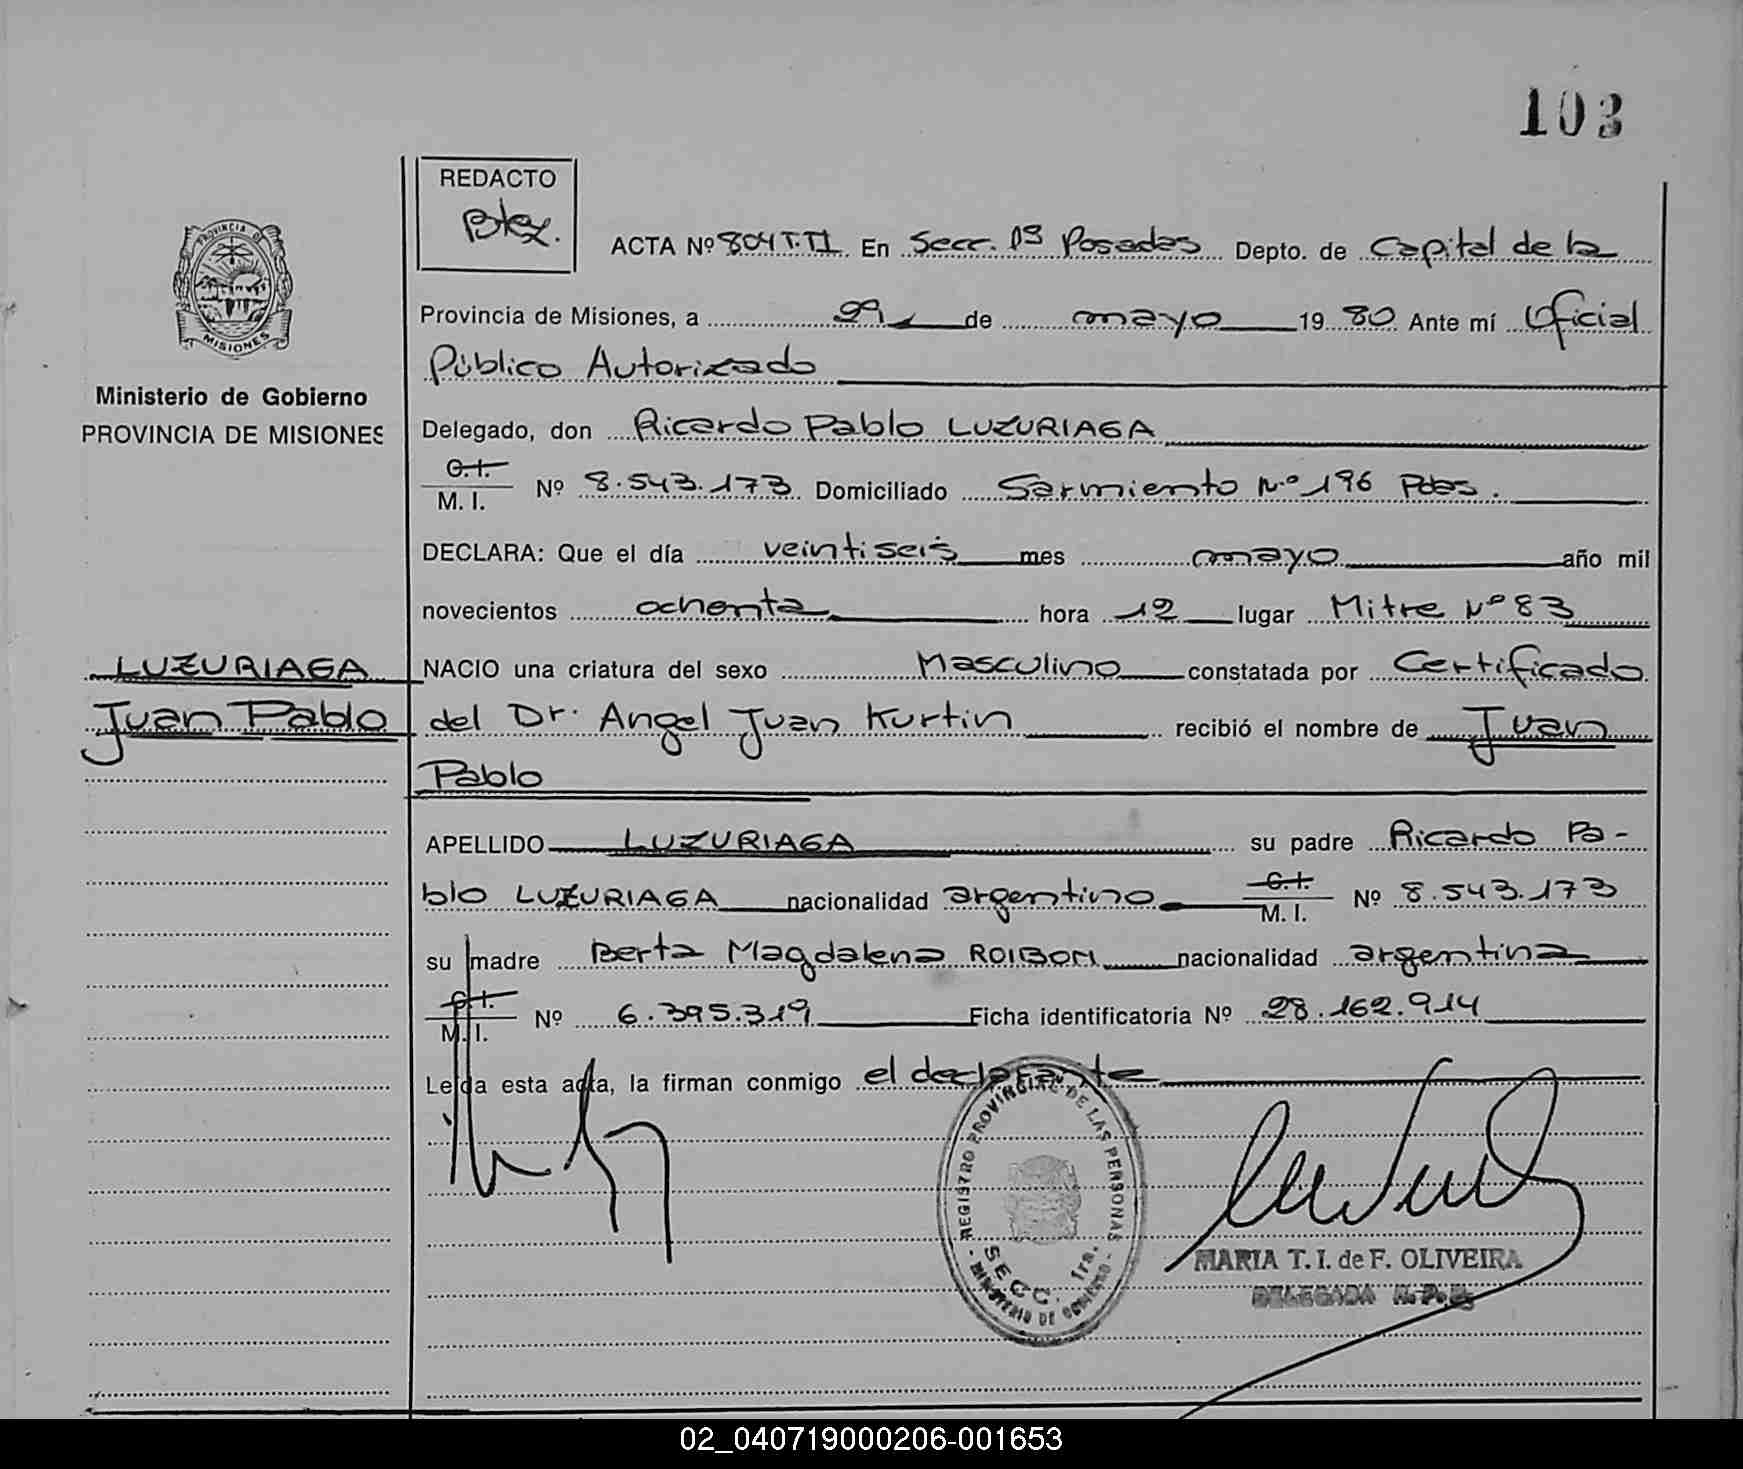 103
REDACTO
PROVINCIA DE
MISIONES
Ministerio de Gobierno
PROVINCIA DE MISIONES
ACTA Nº 804 T.TI En Secc. 1ª Posadas Depto. de Capital de la
Provincia de Misiones, a 29 de mayo 19 80 Ante mí Oficial
Público Autorizado
Delegado, don Ricardo Pablo LUZURIAGA
C.I.
M. I. Nº 8.543.173 Domiciliado Sarmiento Nº 196 Pdas.
DECLARA: Que el día veintiseis mes mayo año mil
novecientos ochenta hora 12 lugar Mitre Nº 83
LUZURIAGA NACIO una criatura del sexo Masculino constatada por Certificado
Juan Pablo del Dr. Angel Juan Kurtin recibió el nombre de Juan
Pablo
APELLIDO LUZURIAGA su padre Ricardo Pa-
blo LUZURIAGA nacionalidad argentino C.I. M. I. Nº 8.543.173
su madre Berta Magdalena ROIBON nacionalidad argentina
C.I.
M. I. Nº 6.395.319 Ficha identificatoria Nº 28.162.914
Leída esta acta, la firman conmigo el declarante
REGISTRO PROVINCIAL DE LAS PERSONAS
SECC. 1ra.
MINISTERIO DE GOBIERNO
MARIA T. I. de F. OLIVEIRA
DELEGADA R.P.P.
02_040719000206-001653